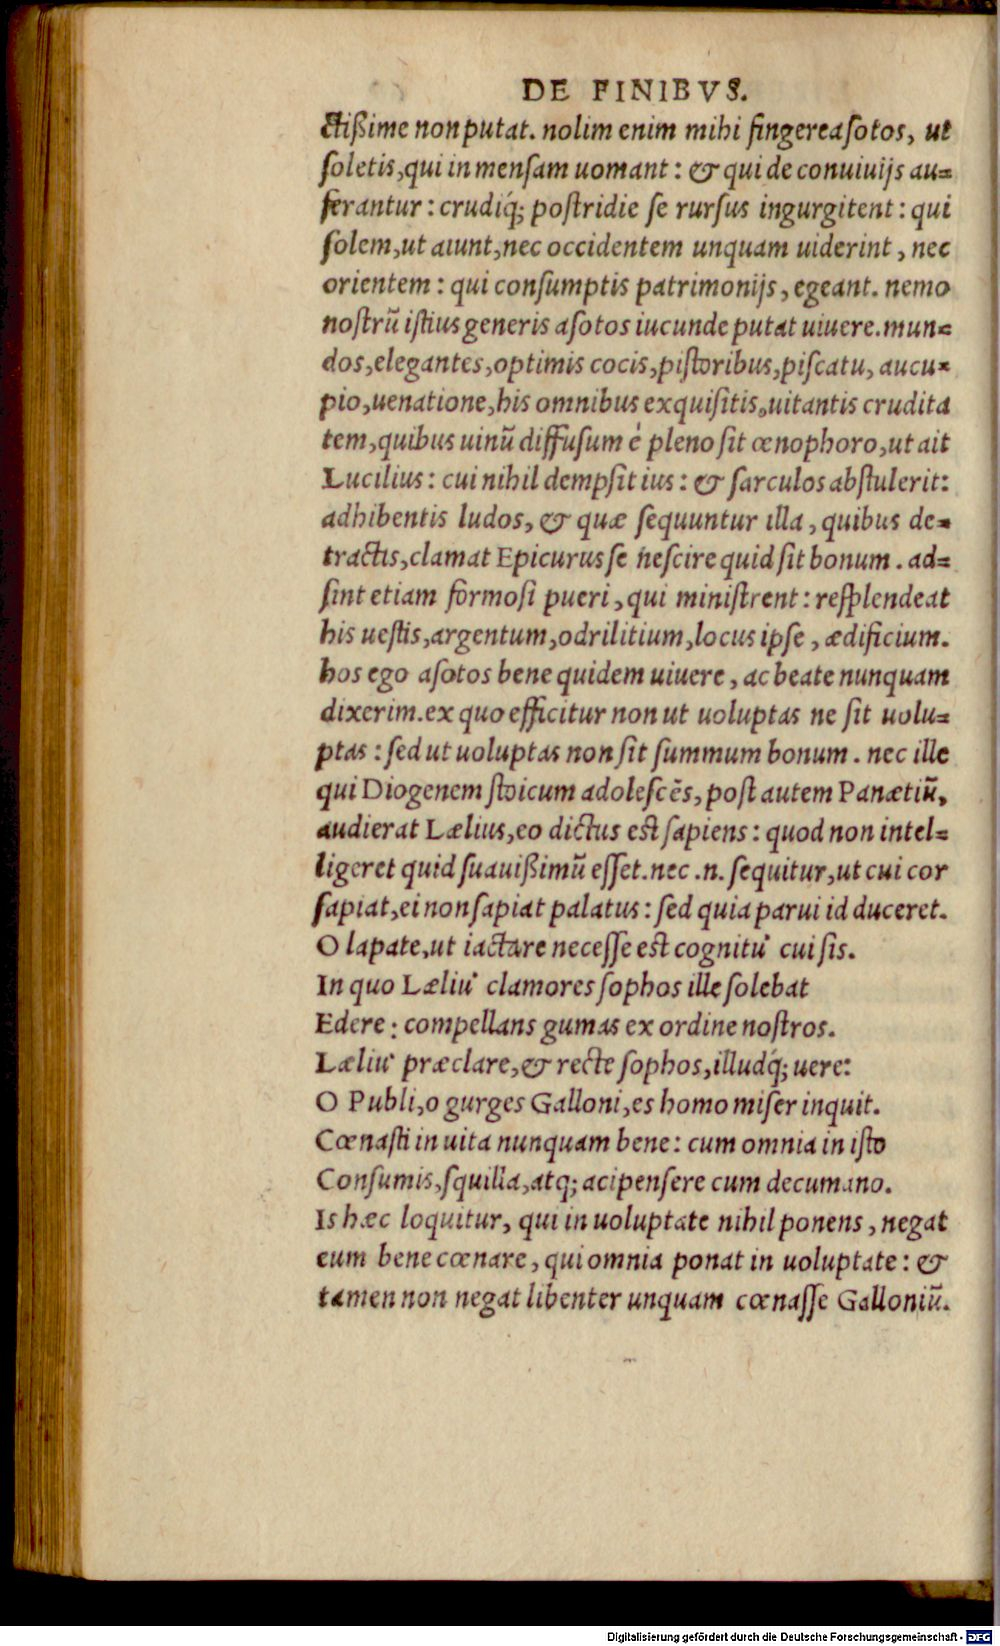 DE FINIBVS.
ctißime non putat. nolim enim mihi fingere asotos, ut
ſoletis, qui in menſam uomant: & qui de conuiuijs au=
ferantur: crudiq́; poſtridie ſe rurſus ingurgitent: qui
ſolem, ut aiunt, nec occidentem unquam uiderint, nec
orientem: qui conſumptis patrimonijs, egeant. nemo
noſtrũ iſtius generis aſotos iucunde putat uiuere. mun=
dos, elegantes, optimis cocis, piſtoribus, piſcatu, aucu=
pio, uenatione, his omnibus exquiſitis, uitantis crudita
tem, quibus uinũ diffuſum é pleno ſit œnophoro, ut ait
Lucilius: cui nihil dempſit ius: & ſarculos abſtulerit:
adhibentis ludos, & quæ ſequuntur illa, quibus de=
tractis, clamat Epicurus ſe neſcire quid ſit bonum. ad=
ſint etiam formoſi pueri, qui miniſtrent: reſplendeat
his ueſtis, argentum, odrilitium, locus ipſe, ædificium.
hos ego aſotos bene quidem uiuere, ac beate nunquam
dixerim. ex quo efficitur non ut uoluptas ne ſit uolu=
ptas: ſed ut uoluptas non ſit ſummum bonum. nec ille
qui Diogenem ſtoicum adoleſcẽs, poſt autem Panætiũ,
audierat Lælius, eo dictus eſt ſapiens: quod non intel=
ligeret quid ſuauißimũ eſſet. nec .n. ſequitur, ut cui cor
ſapiat, ei non ſapiat palatus: ſed quia parui id duceret.
O lapate, ut iactare neceſſe eſt cognitu' cui ſis.
In quo Læliu' clamores ſophos ille ſolebat
Edere: compellans gumas ex ordine noſtros.
Læliu' præclare, & recte ſophos, illudq́; uere:
O Publi, o gurges Galloni, es homo miſer inquit.
Cœnaſti in uita nunquam bene: cum omnia in iſto
Conſumis, ſquilla, atq; acipenſere cum decumano.
Is hæc loquitur, qui in uoluptate nihil ponens, negat
eum bene cœnare, qui omnia ponat in uoluptate: &
tamen non negat libenter unquam cœnaſſe Galloniũ.
Digitalisierung gefördert durch die Deutsche Forschungsgemeinschaft - DFG